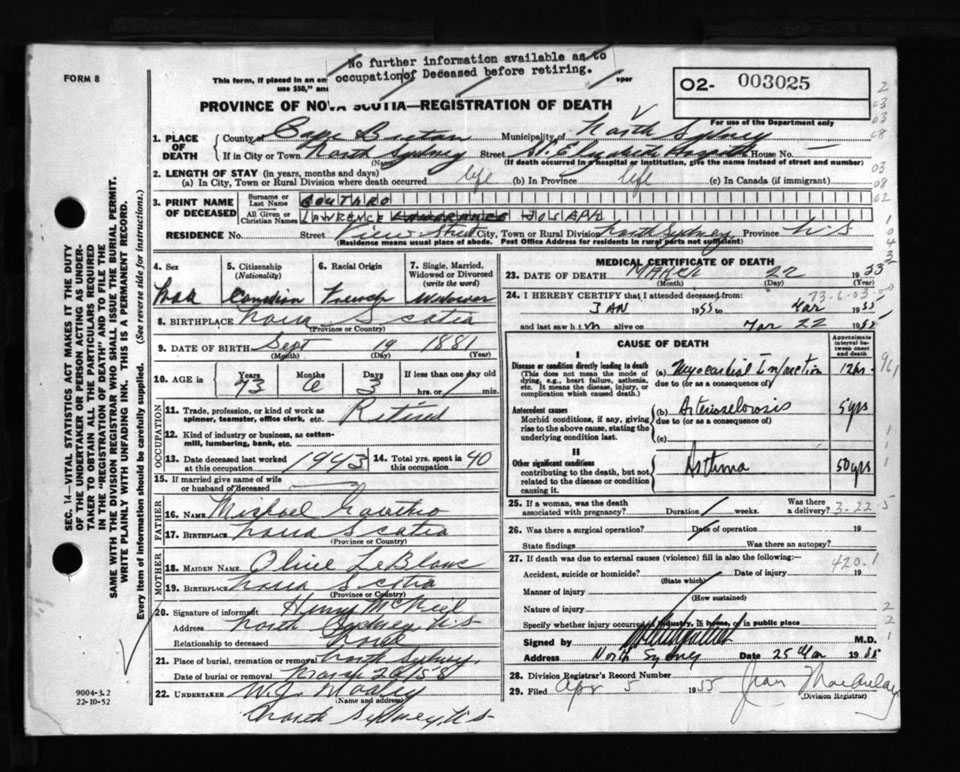 No further information available as to
occupation of Deceased before retiring.
FORM 8
This form, if placed in an en
use $50," an
oper
02- 003025
For use of the Department only
PROVINCE OF NOVA SCOTIA—REGISTRATION OF DEATH
1. PLACE OF DEATH
County of Cape Breton Municipality of North Sydney
If in City or Town North Sydney Street St. Elizabeth Hospital House No. —
(Name) (If death occurred in a hospital or institution, give name instead of street and number)
2. LENGTH OF STAY (in years, months and days)
(a) In City, Town or Rural Division where death occurred life (b) In Province life (c) In Canada (if immigrant)
3. PRINT NAME OF DECEASED
Surname or Last Name GOUTHRO
All Given or Christian Names LAWRENCE JOSEPH
RESIDENCE No. Street View Street City, Town or Rural Division North Sydney Province N.S
(Residence means usual place of abode. Post Office Address for residents in rural parts not sufficient)
4. Sex Male
5. Citizenship (Nationality) Canadian
6. Racial Origin French
7. Single, Married, Widowed or Divorced (write the word) Widower
8. BIRTHPLACE Nova Scotia
(Province or Country)
9. DATE OF BIRTH Sept 19 1881
(Month) (Day) (Year)
10. AGE in Years 73 Months 6 Days 3 If less than one day old
hrs. or min.
OCCUPATION
11. Trade, profession, or kind of work as spinner, teamster, office clerk, etc. Retired
12. Kind of industry or business, as cotton-mill, lumbering, bank, etc.
13. Date deceased last worked at this occupation 1943
14. Total yrs. spent in this occupation 40
15. If married give name of wife or husband of deceased
FATHER
16. NAME Michael Gouthro
17. BIRTHPLACE Nova Scotia
(Province or Country)
MOTHER
18. MAIDEN NAME Olive LeBlanc
19. BIRTHPLACE Nova Scotia
(Province or Country)
20. Signature of informant Henry McNeil
Address North Sydney N.S
Relationship to deceased
21. Place of burial, cremation or removal North Sydney
Date of burial or removal
22. UNDERTAKER W.J.
(Name and address)
North Sydney, N.S
MEDICAL CERTIFICATE OF DEATH
23. DATE OF DEATH MARCH 22 1955
(Month) (Day)
24. I HEREBY CERTIFY that I attended deceased from:
JAN 1955 to Mar 1955
73-6-03
and last saw him alive on Mar 22 1955
CAUSE OF DEATH
Approximate interval between onset and death
I
Disease or condition directly leading to death
(This does not mean the mode of dying, e.g., heart failure, asthenia, etc. It means the disease, injury, or complication which caused death.)
(a) Myocardial Infarction 12hrs.
due to (or as a consequence of)
Antecedent causes
Morbid conditions, if any, giving rise to the above cause, stating the underlying condition last.
(b) Arteriosclerosis 5 yrs
due to (or as a consequence of)
(c)
II
Other significant conditions
contributing to the death, but not related to the disease or condition causing it.
Asthma 50 yrs
25. If a woman, was the death associated with pregnancy? Duration weeks. Was there a delivery? 3-22-5
26. Was there a surgical operation? Date of operation
State findings Was there an autopsy?
27. If death was due to external causes (violence) fill in also the following:—
Accident, suicide or homicide? Date of injury 420.1
(State which)
Manner of injury
(How sustained)
Nature of injury
Specify whether injury occurred in industry, in home, or in public place
Signed by M.D.
Address North Sydney Date 25 Mar 1955
28. Division Registrar's Record Number
29. Filed Apr 5 1955 Jean MacAulay
(Division Registrar)
SEC. 14—VITAL STATISTICS ACT MAKES IT THE DUTY
OF THE UNDERTAKER OR PERSON ACTING AS UNDER-
TAKER TO OBTAIN ALL THE PARTICULARS REQUIRED
IN THE "REGISTRATION OF DEATH" AND TO FILE THE
SAME WITH THE DIVISION REGISTRAR WHO SHALL ISSUE THE BURIAL PERMIT.
WRITE PLAINLY WITH UNFADING INK. THIS IS A PERMANENT RECORD.
Every item of information should be carefully supplied. (See reverse side for instructions.)
9004-3.2
22-10-52